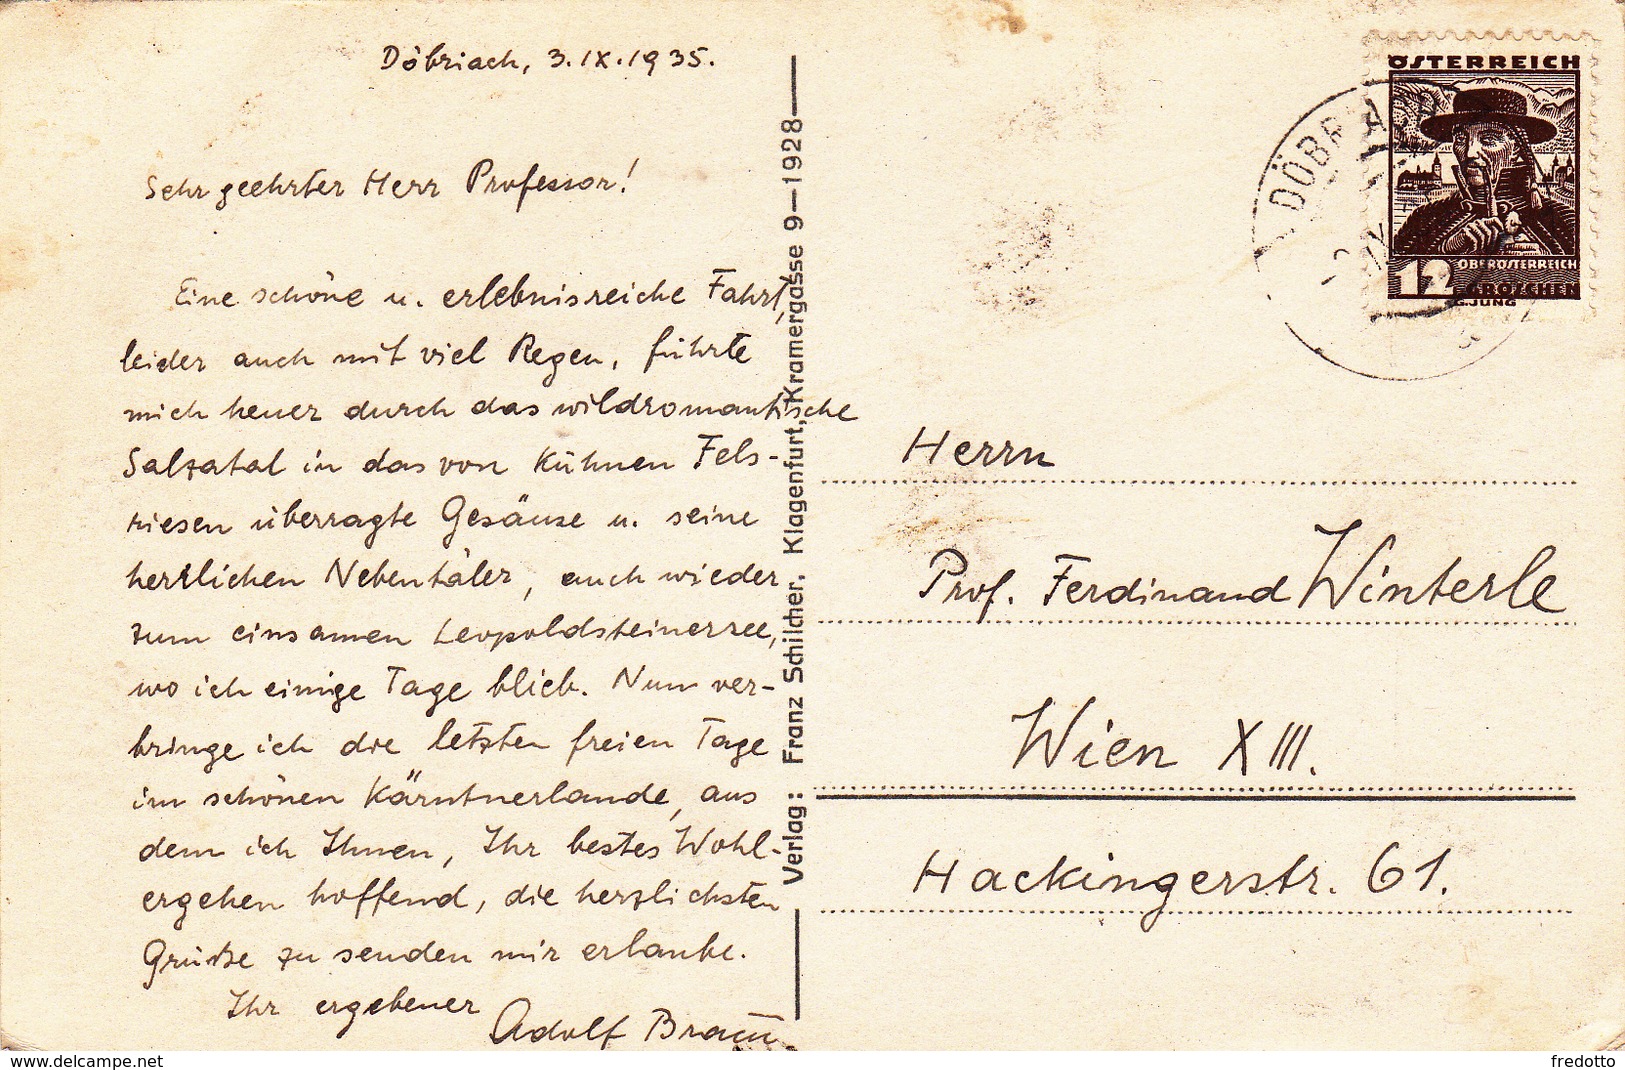 Döbriach, 3.IX.1935.
Sehr geehrter Herr Professor!
Eine schöne u. erlebnisreiche Fahrt,
leider auch mit viel Regen, führte
mich heuer durch das wildromantische
Salzatal in das von kühnen Fels-
riesen überragte Gesäuse u. seine
herrlichen Nebentäler, auch wieder
zum einsamen Leopoldsteinersee,
wo ich einige Tage blieb. Nun ver-
bringe ich die letzten freien Tage
im schönen Kärntnerlande, aus
dem ich Ihnen, Ihr bestes Wohl-
ergehen hoffend, die herzlichsten
Grüße zu senden mir erlaube.
Ihr ergebener
Adolf Braun
Verlag: Franz Schilcher. Klagenfurt, Kramergasse 9—1928
ÖSTERREICH
OBERÖSTERREICH
12 GROSCHEN
G.JUNG
DÖBRIACH
Herrn
Prof. Ferdinand Winterle
Wien XIII.
Hackingerstr. 61.
www.delcampe.net
fredotto